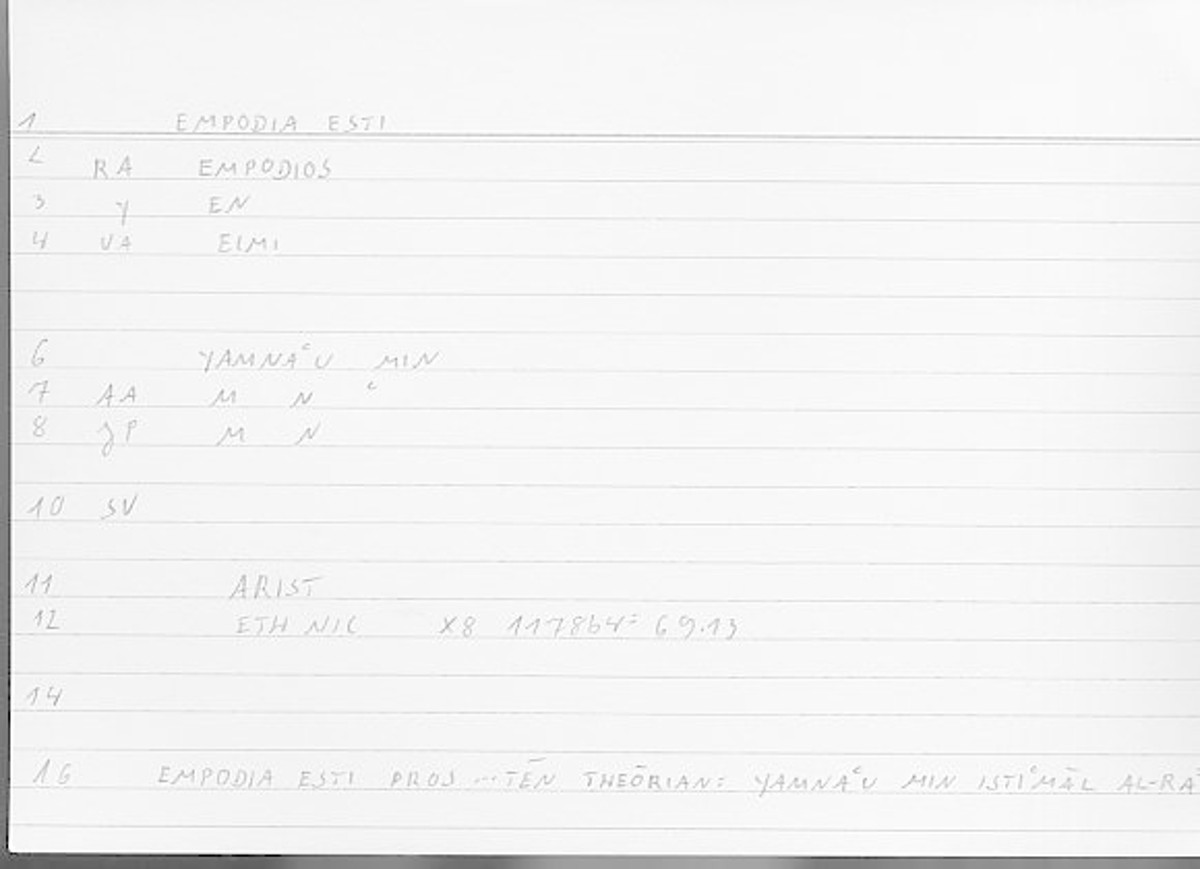 1 EMPODIA ESTI
2 RA EMPODIOS
3 Y EN
4 VA EIMI
6 YAMNAʿU MIN
7 AA M N ʿ
8 JP M N
10 SV
11 ARIST
12 ETH NIC X8 1178b4= 69.13
14
16 EMPODIA ESTI PROS ...TĒN THEŌRIAN: YAMNAʿU MIN ISTIʿMĀL AL-RA